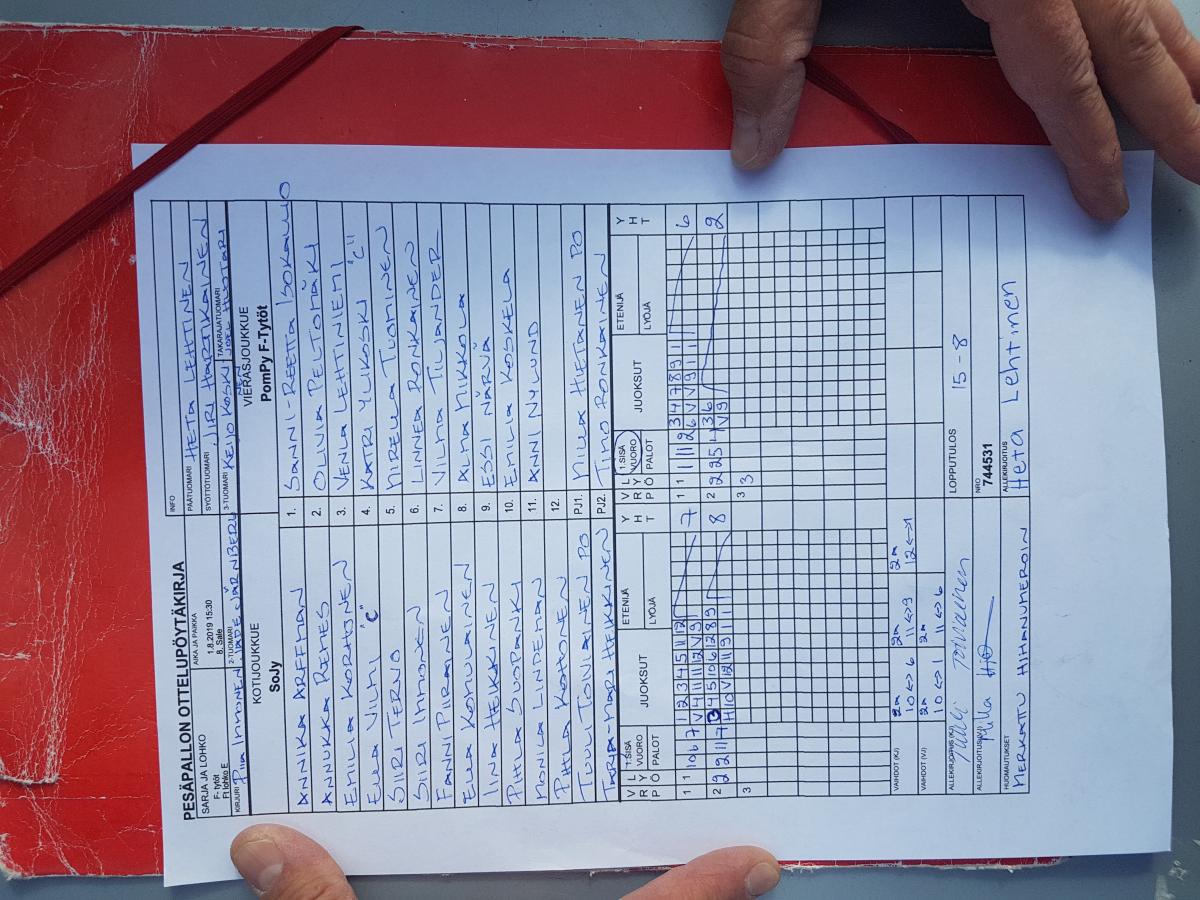 PESÄPALLON OTTELUPÖYTÄKIRJA
INFO
SARJA JA LOHKO
F- tytöt
Ft lohko E
AIKA JA PAIKKA
1.8.2019 15:30
8. Sale
PÄÄTUOMARI HETA LEHTINEN
SYÖTTÖTUOMARI JIRI HARTIKAINEN
KIRJURI Piia Immonen
2-TUOMARI JADE JÄRNBERG
3-TUOMARI KEIJO KOSKINEN
TAKARAJATUOMARI JOEL HUOTARI
KOTIJOUKKUE
SoJy
VIERASJOUKKUE
PomPy F-Tytöt
ANNIKA ARFFMAN 1. SANNI-REETTA ISOKALLIO
ANNUKKA REMES 2. OLIVIA PELTOMÄKI
EMILIA KORHONEN 3. VENLA LEHTINIEMI
ELLA VILMI "C" 4. KATRI YLIKOSKI "C"
SIIRI TERVO 5. MIRELLA TUOMINEN
SIIRI IMMONEN 6. LINNEA RONKAINEN
FANNI PIIRAINEN 7. VILMA TILJANDER
8. ALMA MIKKOLA
IINA HEIKKINEN 9. ESSI NÄRVÄ
PIHLA SUOPANKI 10. EMILIA KOSKELA
MONICA LINDEMAN 11. ANNI NYLUND
PIHLA KOHONEN 12.
TUULI TOIVIAINEN PO PJ1. MILLA HIETANEN PO
TARJA-MARI HEIKKINEN PJ2. TIMO RONKAINEN
V R L Y P Ö
1.SISÄ VUORO
PALOT
JUOKSUT
ETENIJÄ
LYÖJÄ
Y H T
V R L Y P Ö
1.SISÄ VUORO
PALOT
JUOKSUT
ETENIJÄ
LYÖJÄ
Y H T
1 1 10 6 7 1 2 3 4 5 11 12 7
V 4 11 11 12 V 9
1 1 1 1 2 3 4 7 8 9 1 6
6 V V 9 1 1
2 2 2 11 7 3 4 5 10 6 12 8 9 8
4 10 V 12 11 9 1 1
2 2 2 5 4 3 6 2
V 9
3
3 3
VAIHDOT (KJ) 2a 10<->6 2a 11<->9 2a 12<->1
VAIHDOT (VJ) 2a 10<->1 2a 11<->6
ALLEKIRJOITUS (KJ) Tuuli Toiviainen
LOPPUTULOS 15-8
ALLEKIRJOITUS(VJ) Milla
NRO
744531
HUOMAUTUKSET
MERKATTU HIHANUMEROIN
ALLEKIRJOITUS
Heta Lehtinen